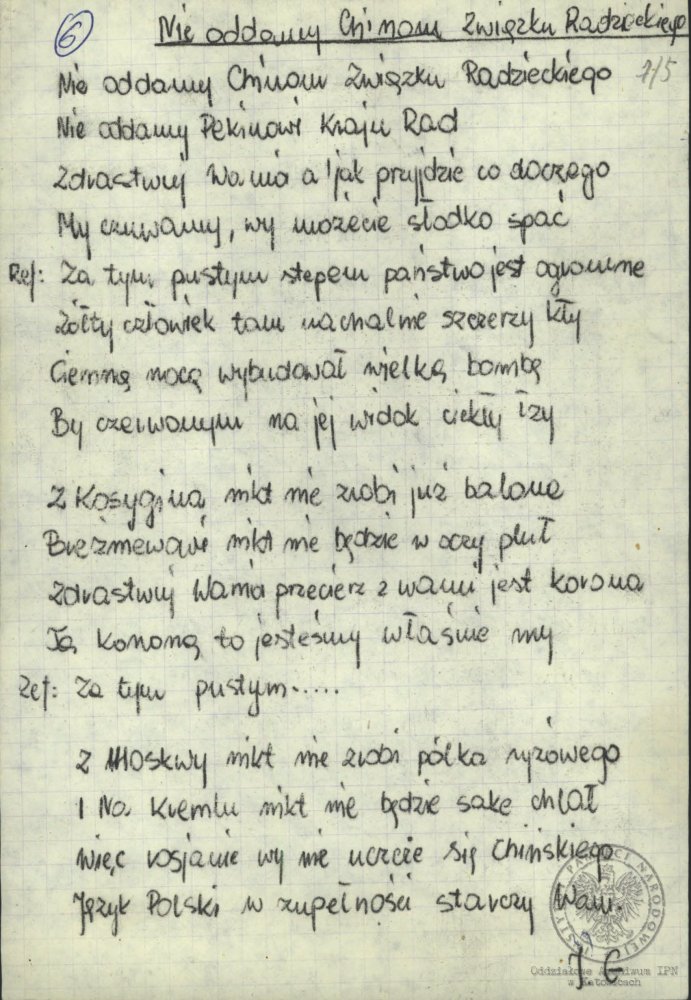 6
Nie oddamy Chinom Związku Radzieckiego
Nie oddamy Chinom Związku Radzieckiego 7/5
Nie oddamy Pekinowi Kraju Rad
Zdrastwuj Wania a jak przyjdzie co doczego
My czuwamy, wy możecie słodko spać
Ref: Za tym pustym stepem państwo jest ogromne
Żółty człowiek tam nachalnie szczerzy kły
Ciemną nocą wybudował wielką bombę
By czerwonym na jej widok ciekły łzy
Z Kosygina nikt nie zrobi już balona
Breżniewowi nikt nie będzie w oczy pluł
Zdrastwuj Wania przecierz z wami jest korona
Tą kononą to jesteśmy właśnie my
Ref: Za tym pustym.....
Z Moskwy nikt nie zrobi pólka ryżowego
I Na Kremlu nikt nie będzie sake chlał
więc rosjanie wy nie uczcie się Chińskiego
Język Polski w zupełności starczy Wam.
J. G
INSTYTUT PAMIĘCI NARODOWEJ
Oddziałowe Archiwum IPN
w Katowicach